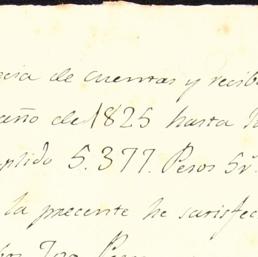 cia de cuentas y recib
año de 1825 hasta
plido 5.377. Pesos 5
la precente he satisfec